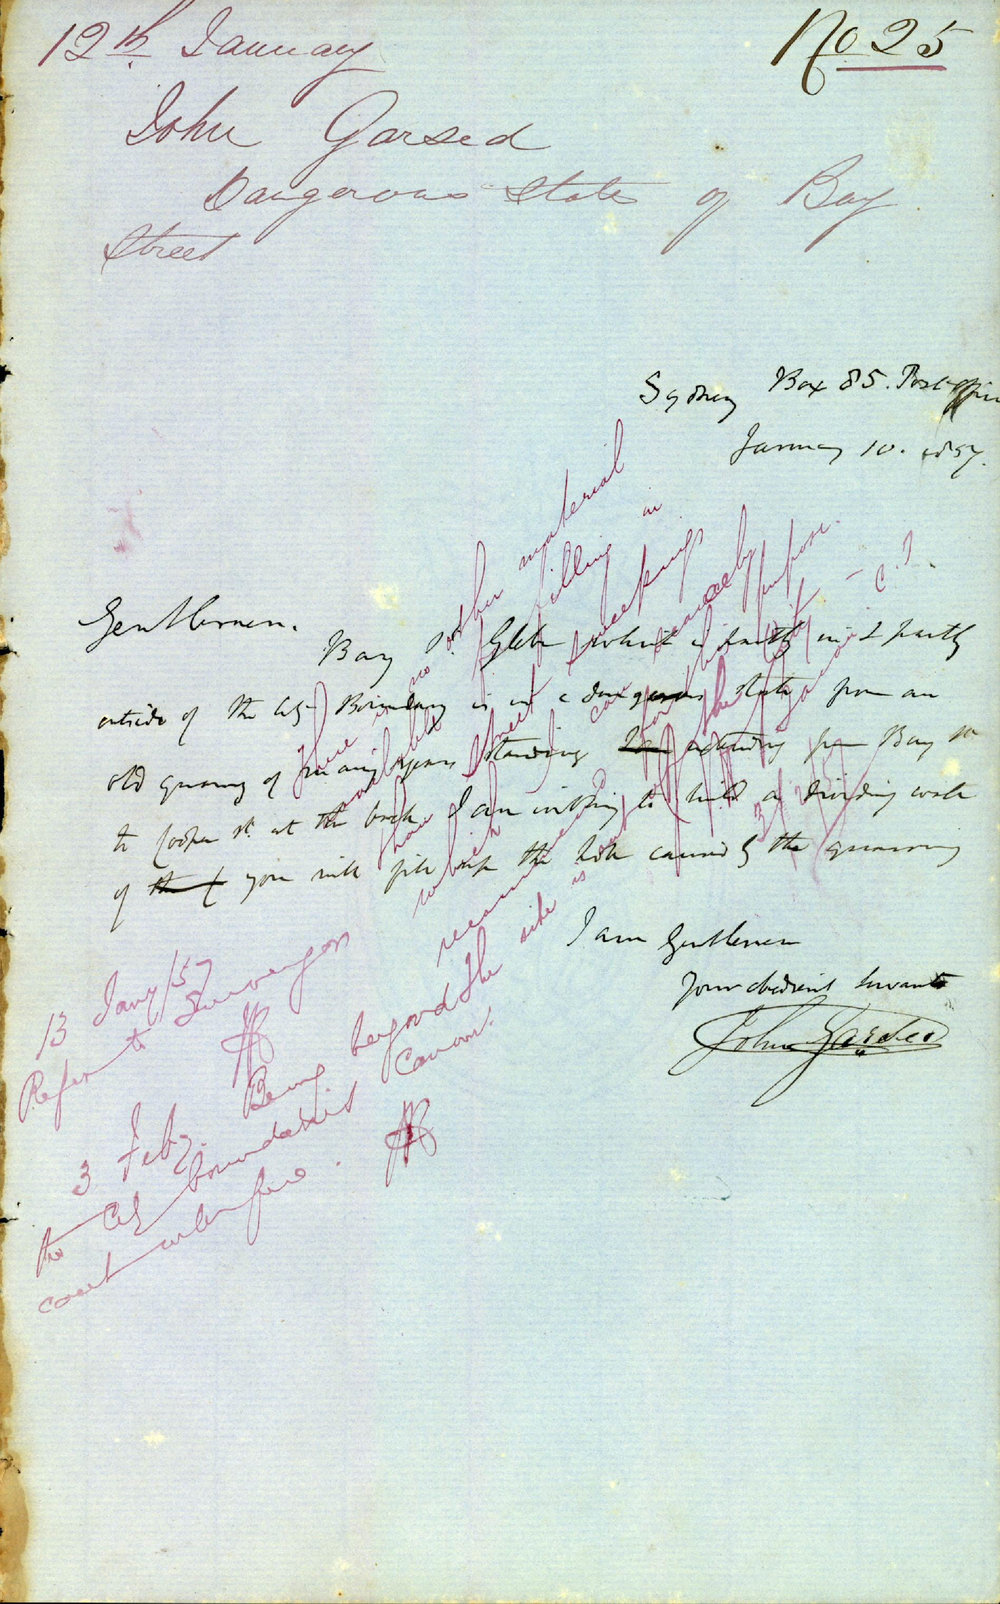 12th January
No 25
John Garsed
Dangerous State of Bay
Street
Sydney Box 85. Post office
January 10. 1857.
Gentlemen.
Bay St. Glebe which is partly in & partly
outside of the City Boundary is in a dangerous state from an
old quarry of many years standing extending from Bay St
to Cooper St. at the back I am willing to build a dividing wall
of you will fill up the hole caused by the quarrying
I am Gentlemen
Your obedient Servant
John Garsed
There is no other material
available for filling in
than Street Sweepings
which can scarcely
recommend for this purpose.
the site is out of the City
13 Jany/57
Refer to Surveyor
3 Feby. Being beyond the
the City boundaries Council
court interfere.